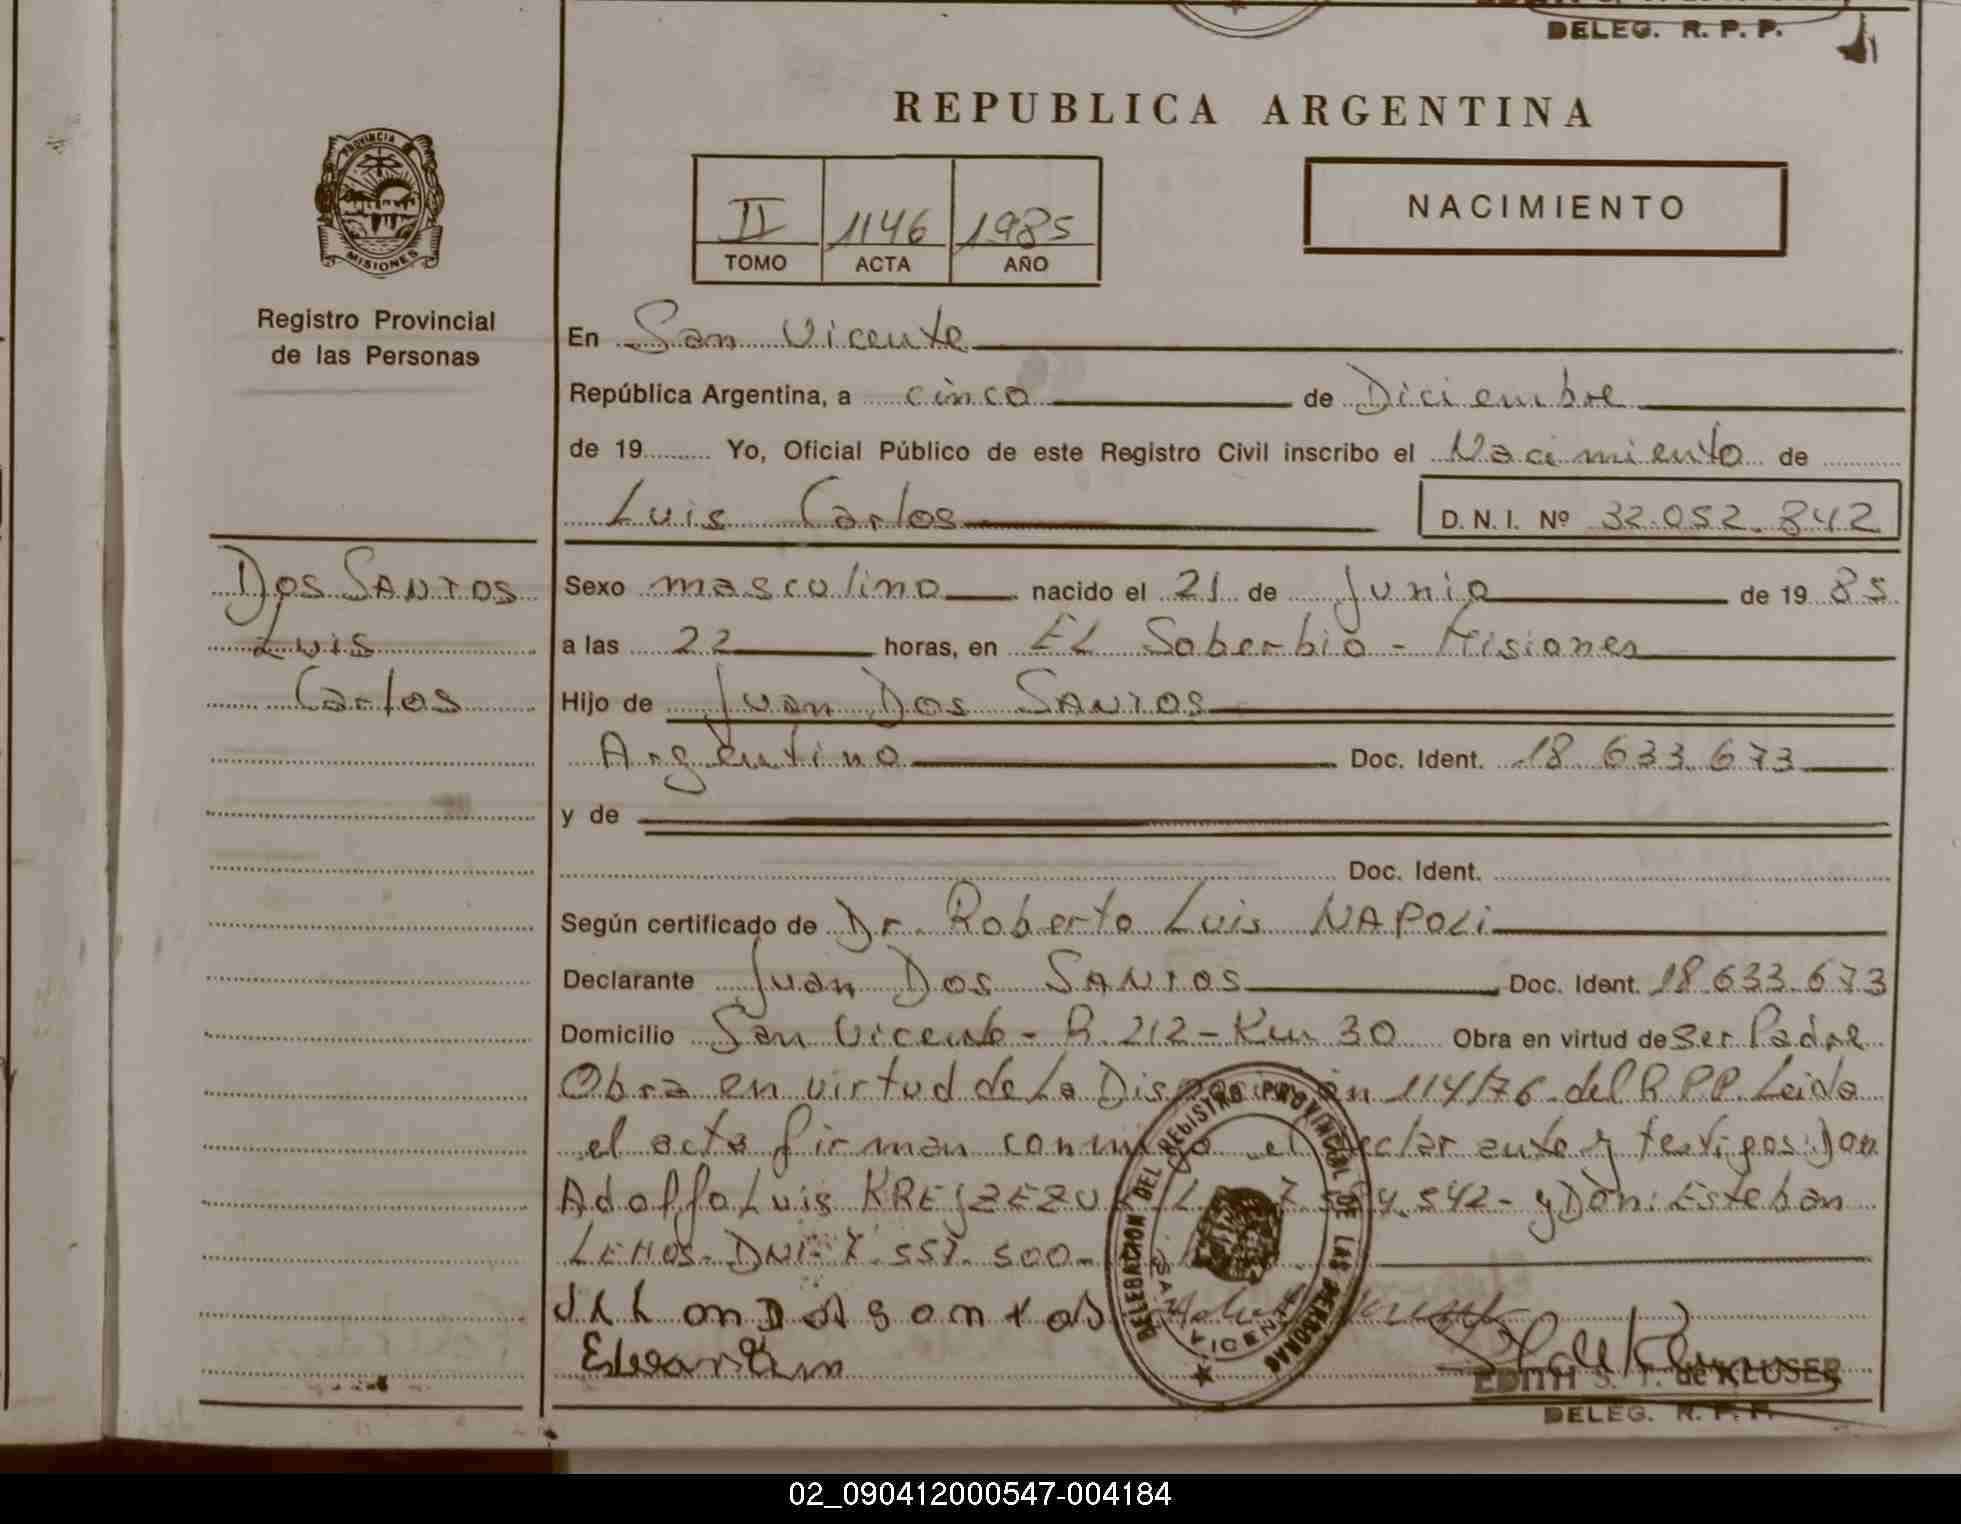 DELEG. R. P. P.
REPUBLICA ARGENTINA
PROVINCIA
MISIONES
II 1146 1985
TOMO ACTA AÑO
NACIMIENTO
Registro Provincial
de las Personas
En San Vicente
República Argentina, a cinco de Diciembre
de 19 Yo, Oficial Público de este Registro Civil inscribo el Nacimiento de
Luis Carlos D. N. I. Nº 32.052.842
Dos SANTOS
Luis
Carlos
Sexo masculino nacido el 21 de Junio de 19 85
a las 22 horas, en EL Soberbio - Misiones
Hijo de Juan Dos SANTOS
Argentino Doc. Ident. 18.633.673
y de
Doc. Ident.
Según certificado de Dr. Roberto Luis NAPOLI
Declarante Juan Dos SANTOS Doc. Ident. 18.633.673
Domicilio San Vicente - R. 212 - Km 30 Obra en virtud de ser Padre
Obra en virtud de La Disposición 114/76 del R.P.P. Leida
el acta firman conmigo el declarante y testigos: Don
Adolfo Luis 542 - y Don: Esteban
LEMOS - DNI 7.557.500 -
DELEGACION DEL REGISTRO PROVINCIAL DE LAS PERSONAS
SAN VICENTE
EDITH S. T. de KLUSER
DELEG. R. P. P.
02_090412000547-004184